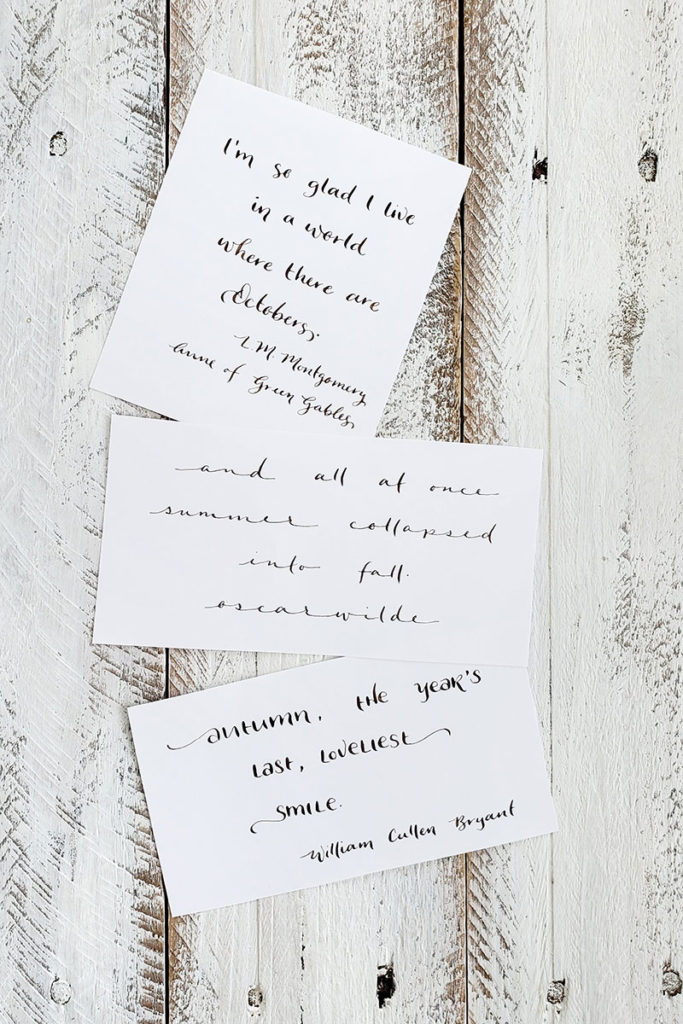 I'm so glad I live
in a world
where there are
Octobers.
L M Montgomery
Anne of Green Gables
and all at once
summer collapsed
into fall.
oscar wilde
autumn, the year's
last, loveliest
smile.
William Cullen Bryant